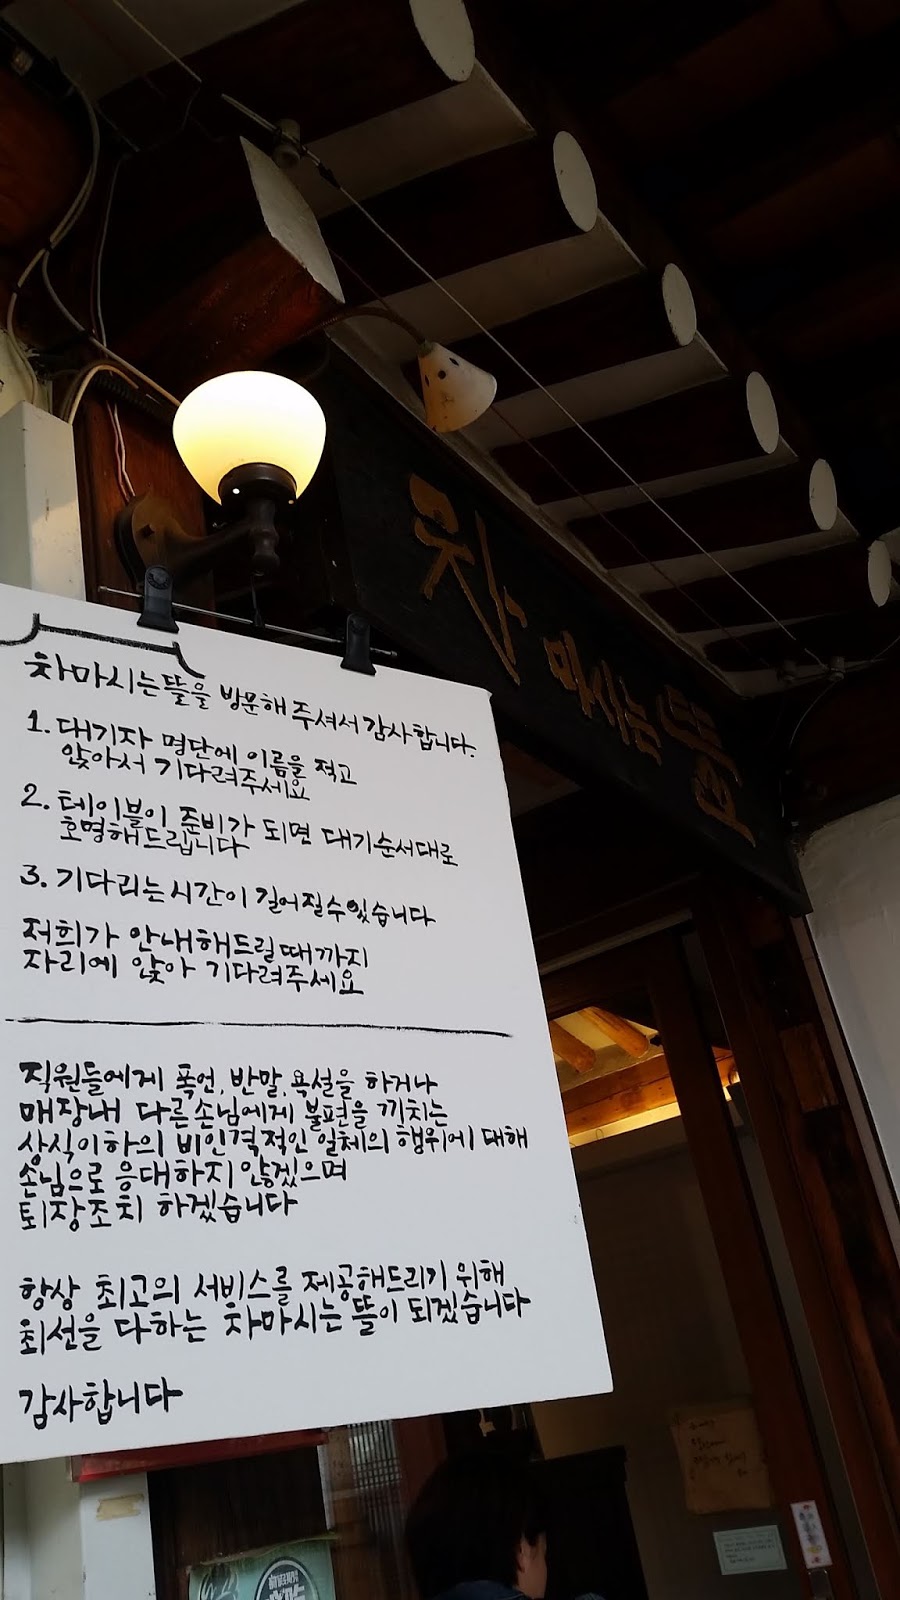 차 마시는 뜰
차마시는뜰을 방문해 주셔서 감사합니다.
1. 대기자 명단에 이름을 적고
앉아서 기다려주세요
2. 테이블이 준비가 되면 대기순서대로
호명해드립니다
3. 기다리는 시간이 길어질수있습니다
저희가 안내해드릴때까지
자리에 앉아 기다려주세요
직원들에게 폭언, 반말, 욕설을 하거나
매장내 다른손님에게 불편을 끼치는
상식이하의 비인격적인 일체의 행위에 대해
손님으로 응대하지 않겠으며
퇴장조치 하겠습니다
항상 최고의 서비스를 제공해드리기 위해
최선을 다하는 차마시는 뜰이 되겠습니다
감사합니다